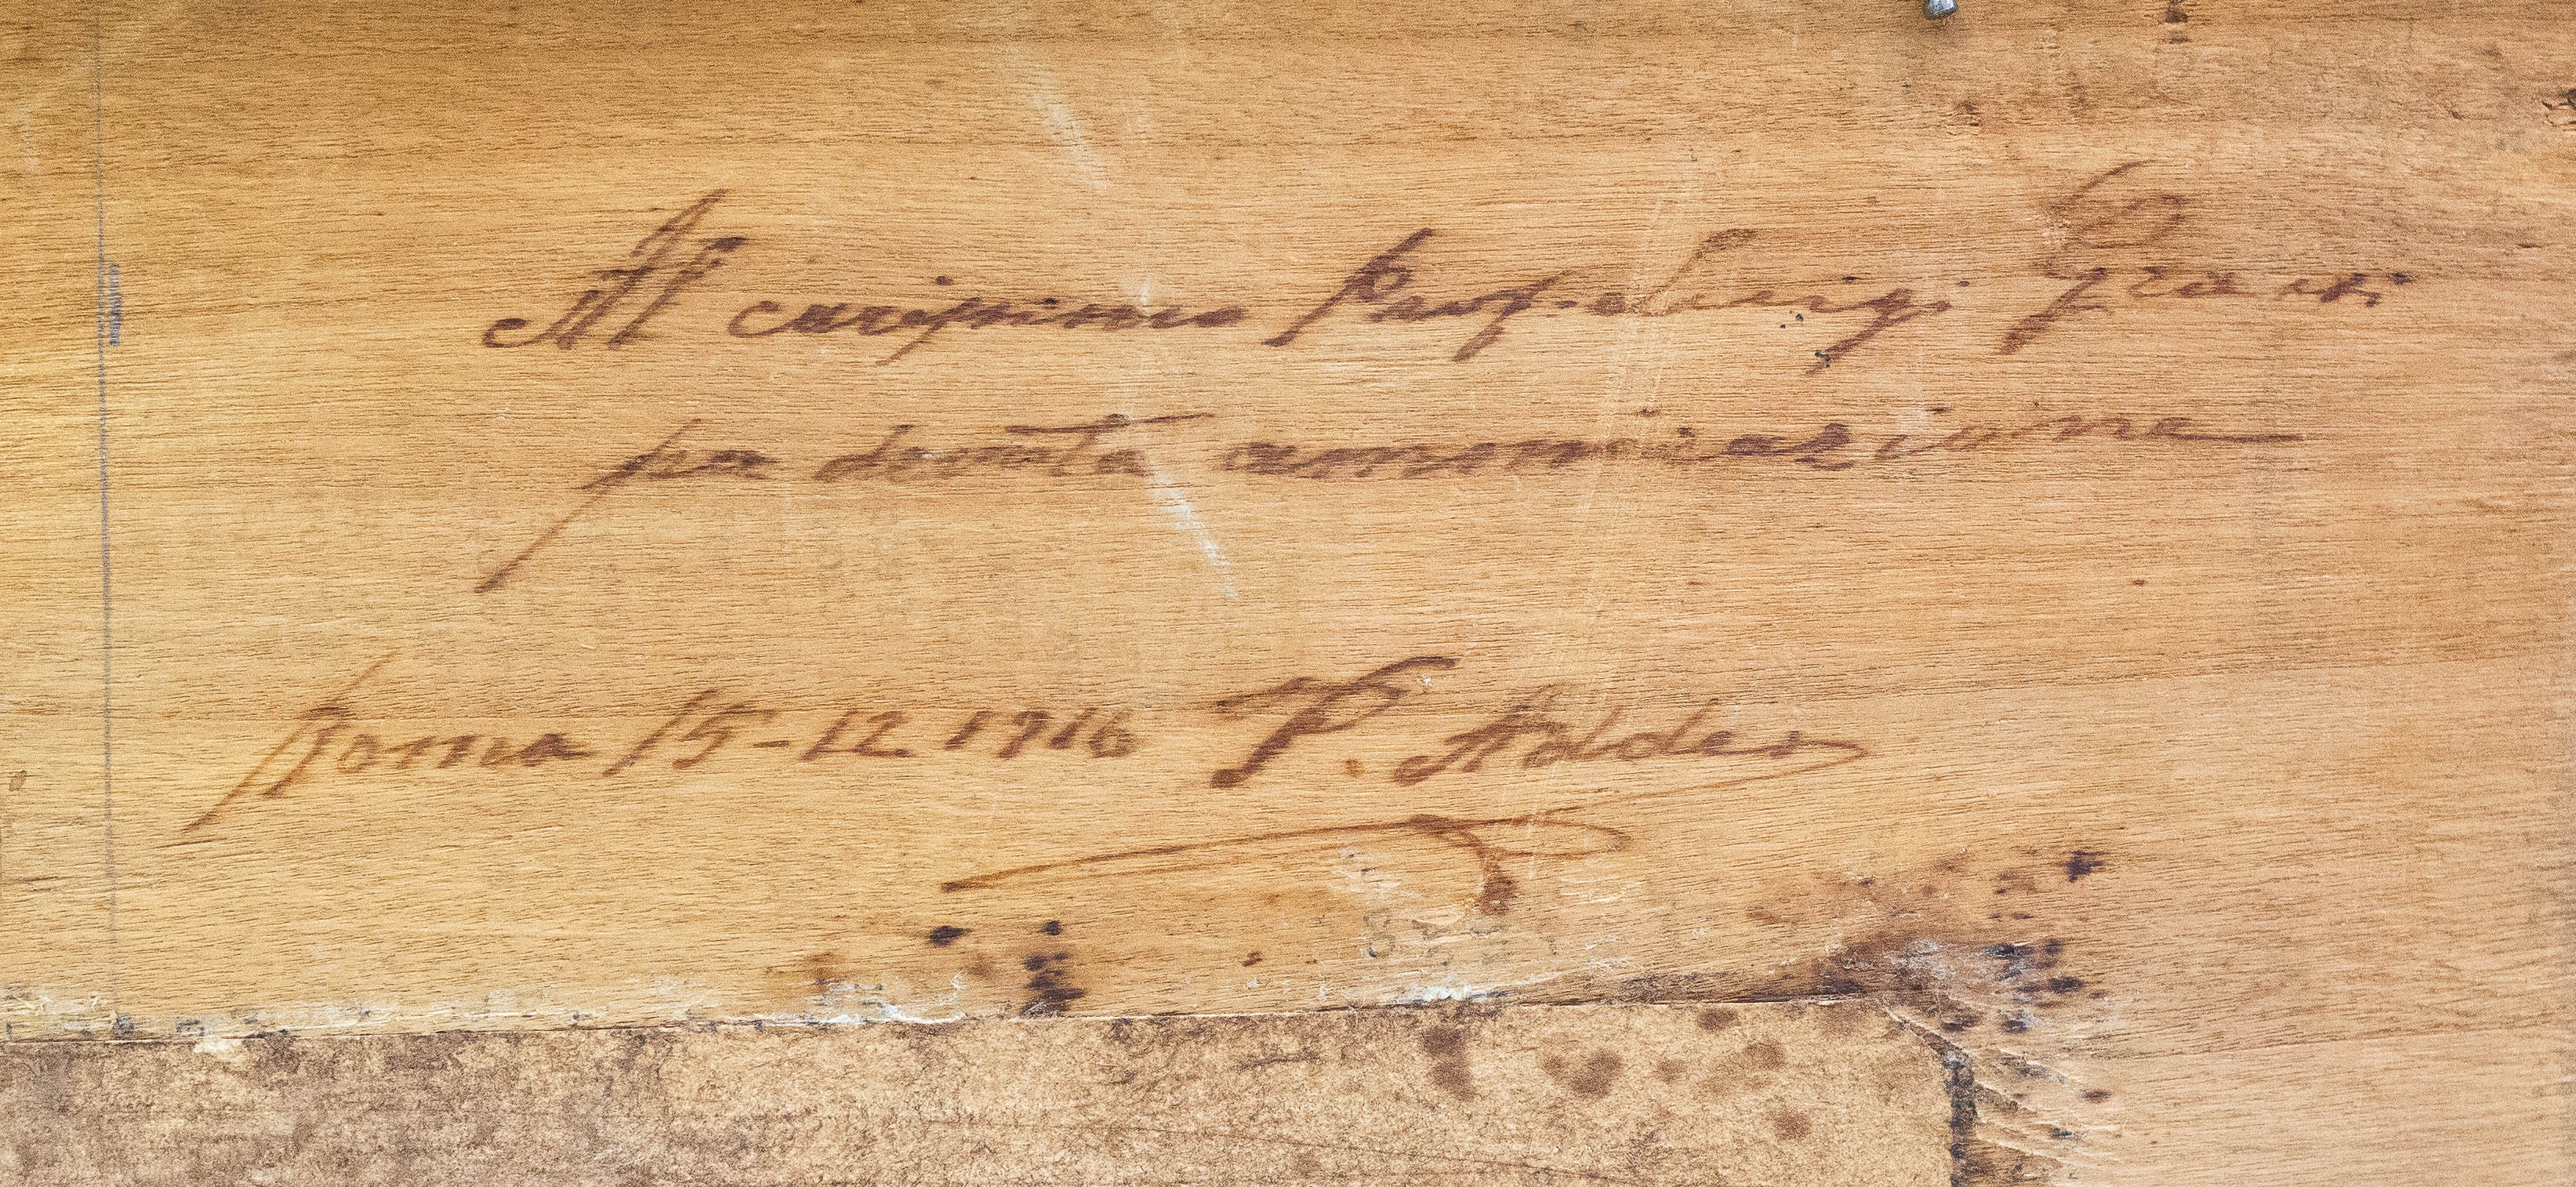 Al carissimo Prof. Luigi Grassi
per devota ammirazione
Roma 15-12 1916 P. Addeo